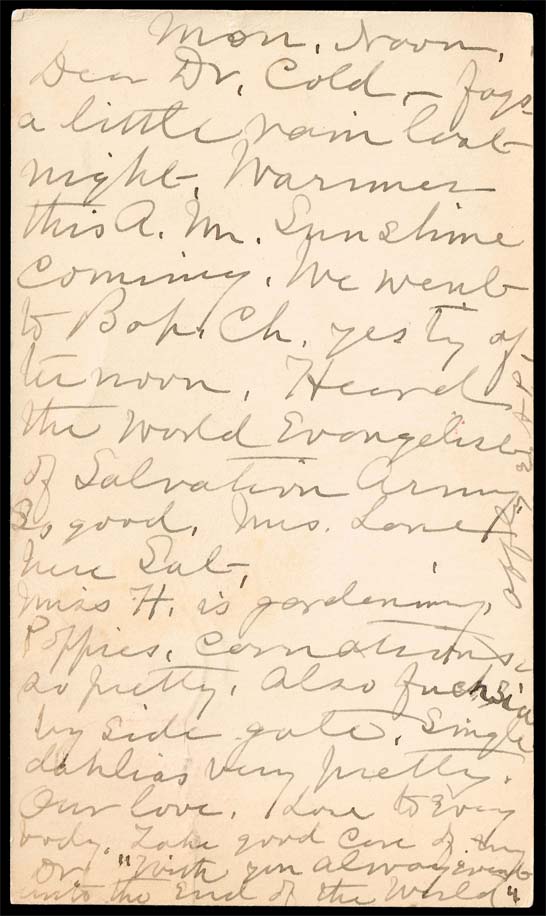 Mon. Noon.
Dear Dr. Cold, - fogs
a little rain last
night. Warmer
this A. M. Sunshine
coming. We went
to Bap. Ch. yesty af
ternoon. Heard
the World Evangelist
of Salvation Army
So good. Mrs. Lane
here Sat.
Miss H. is gardening.
Poppies, carnations
so pretty. Also fuchsia
by side gate. Single
dahlias very pretty.
Our love. Love to Every
body. Take good care of my
Dr. "With you alway even
unto the End of the World"